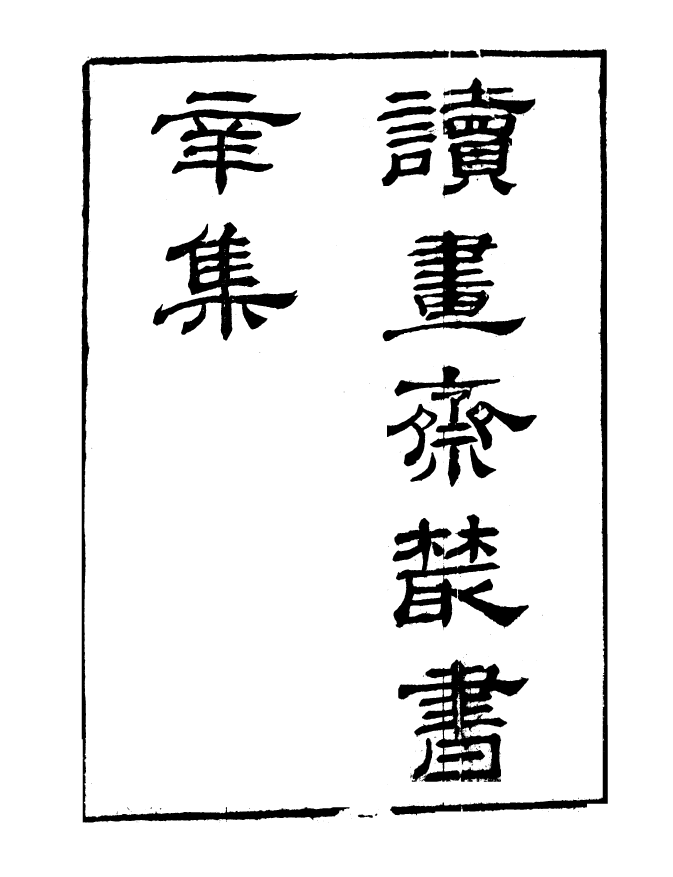 讀畫齋叢書
辛集